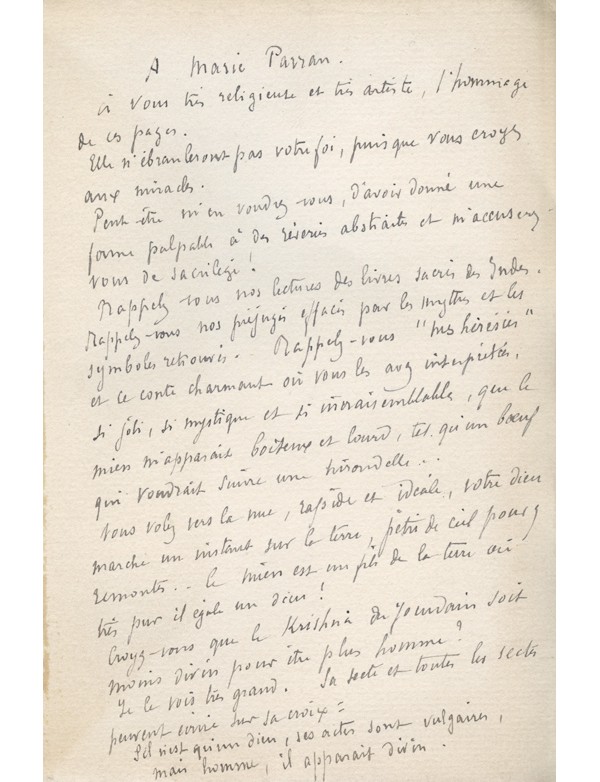 A Marie Parran.
à vous très religieuse et très artiste, l'hommage
de ces pages.
Elle n'ébranleront pas votre foi, puisque vous croyez
aux miracles.
Peut-être m'en voudrez-vous, d'avoir donné une
forme palpable à des rêveries abstraites et m'accuserez-
vous de sacrilège !
Rappelez-vous nos lectures des livres sacrés des Indes.
Rappelez-vous nos préjugés effacés par les mythes et les
symboles retrouvés.. Rappelez-vous "mes hérésies"
et ce conte charmant où vous les avez interprétées,
si joli, si mystique et si invraisemblable, que le
mien m'apparait boiteux et lourd, tel qu'un bœuf
qui voudrait suivre une hirondelle...
Vous volez vers la nue, rapide et idéale, votre dieu
marche un instant sur la terre, pétri de ciel pour y
remonter... le mien est un fils de la terre où
très pur il égale un dieu !
Croyez-vous que le Krishna du Jourdain soit
moins divin pour être plus homme ?
Je le vois très grand. Sa secte et toutes les sectes
peuvent écrire sur sa croix =
S'il n'est qu'un dieu, ses actes sont vulgaires,
mais homme, il apparait divin.